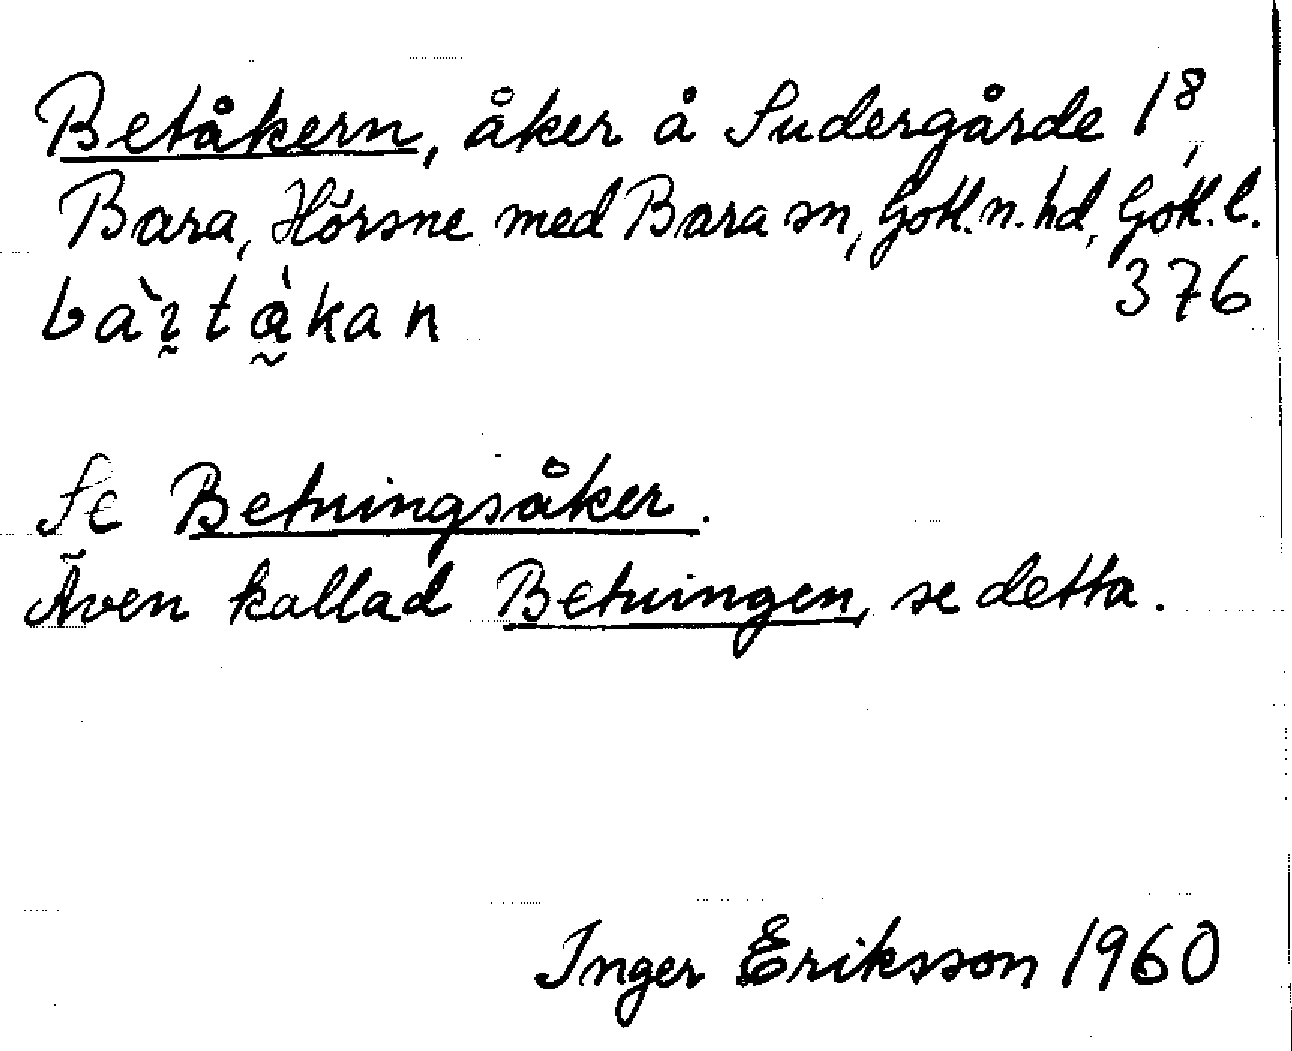 Betåkern, åker å Sudergårde 1⁸,
Bara, Hörsne med Bara sn, Gotl. n. hd, Gotl. l.
376
Se Betningsåker.
Även kallad Betningen, se detta.
Inger Eriksson 1960